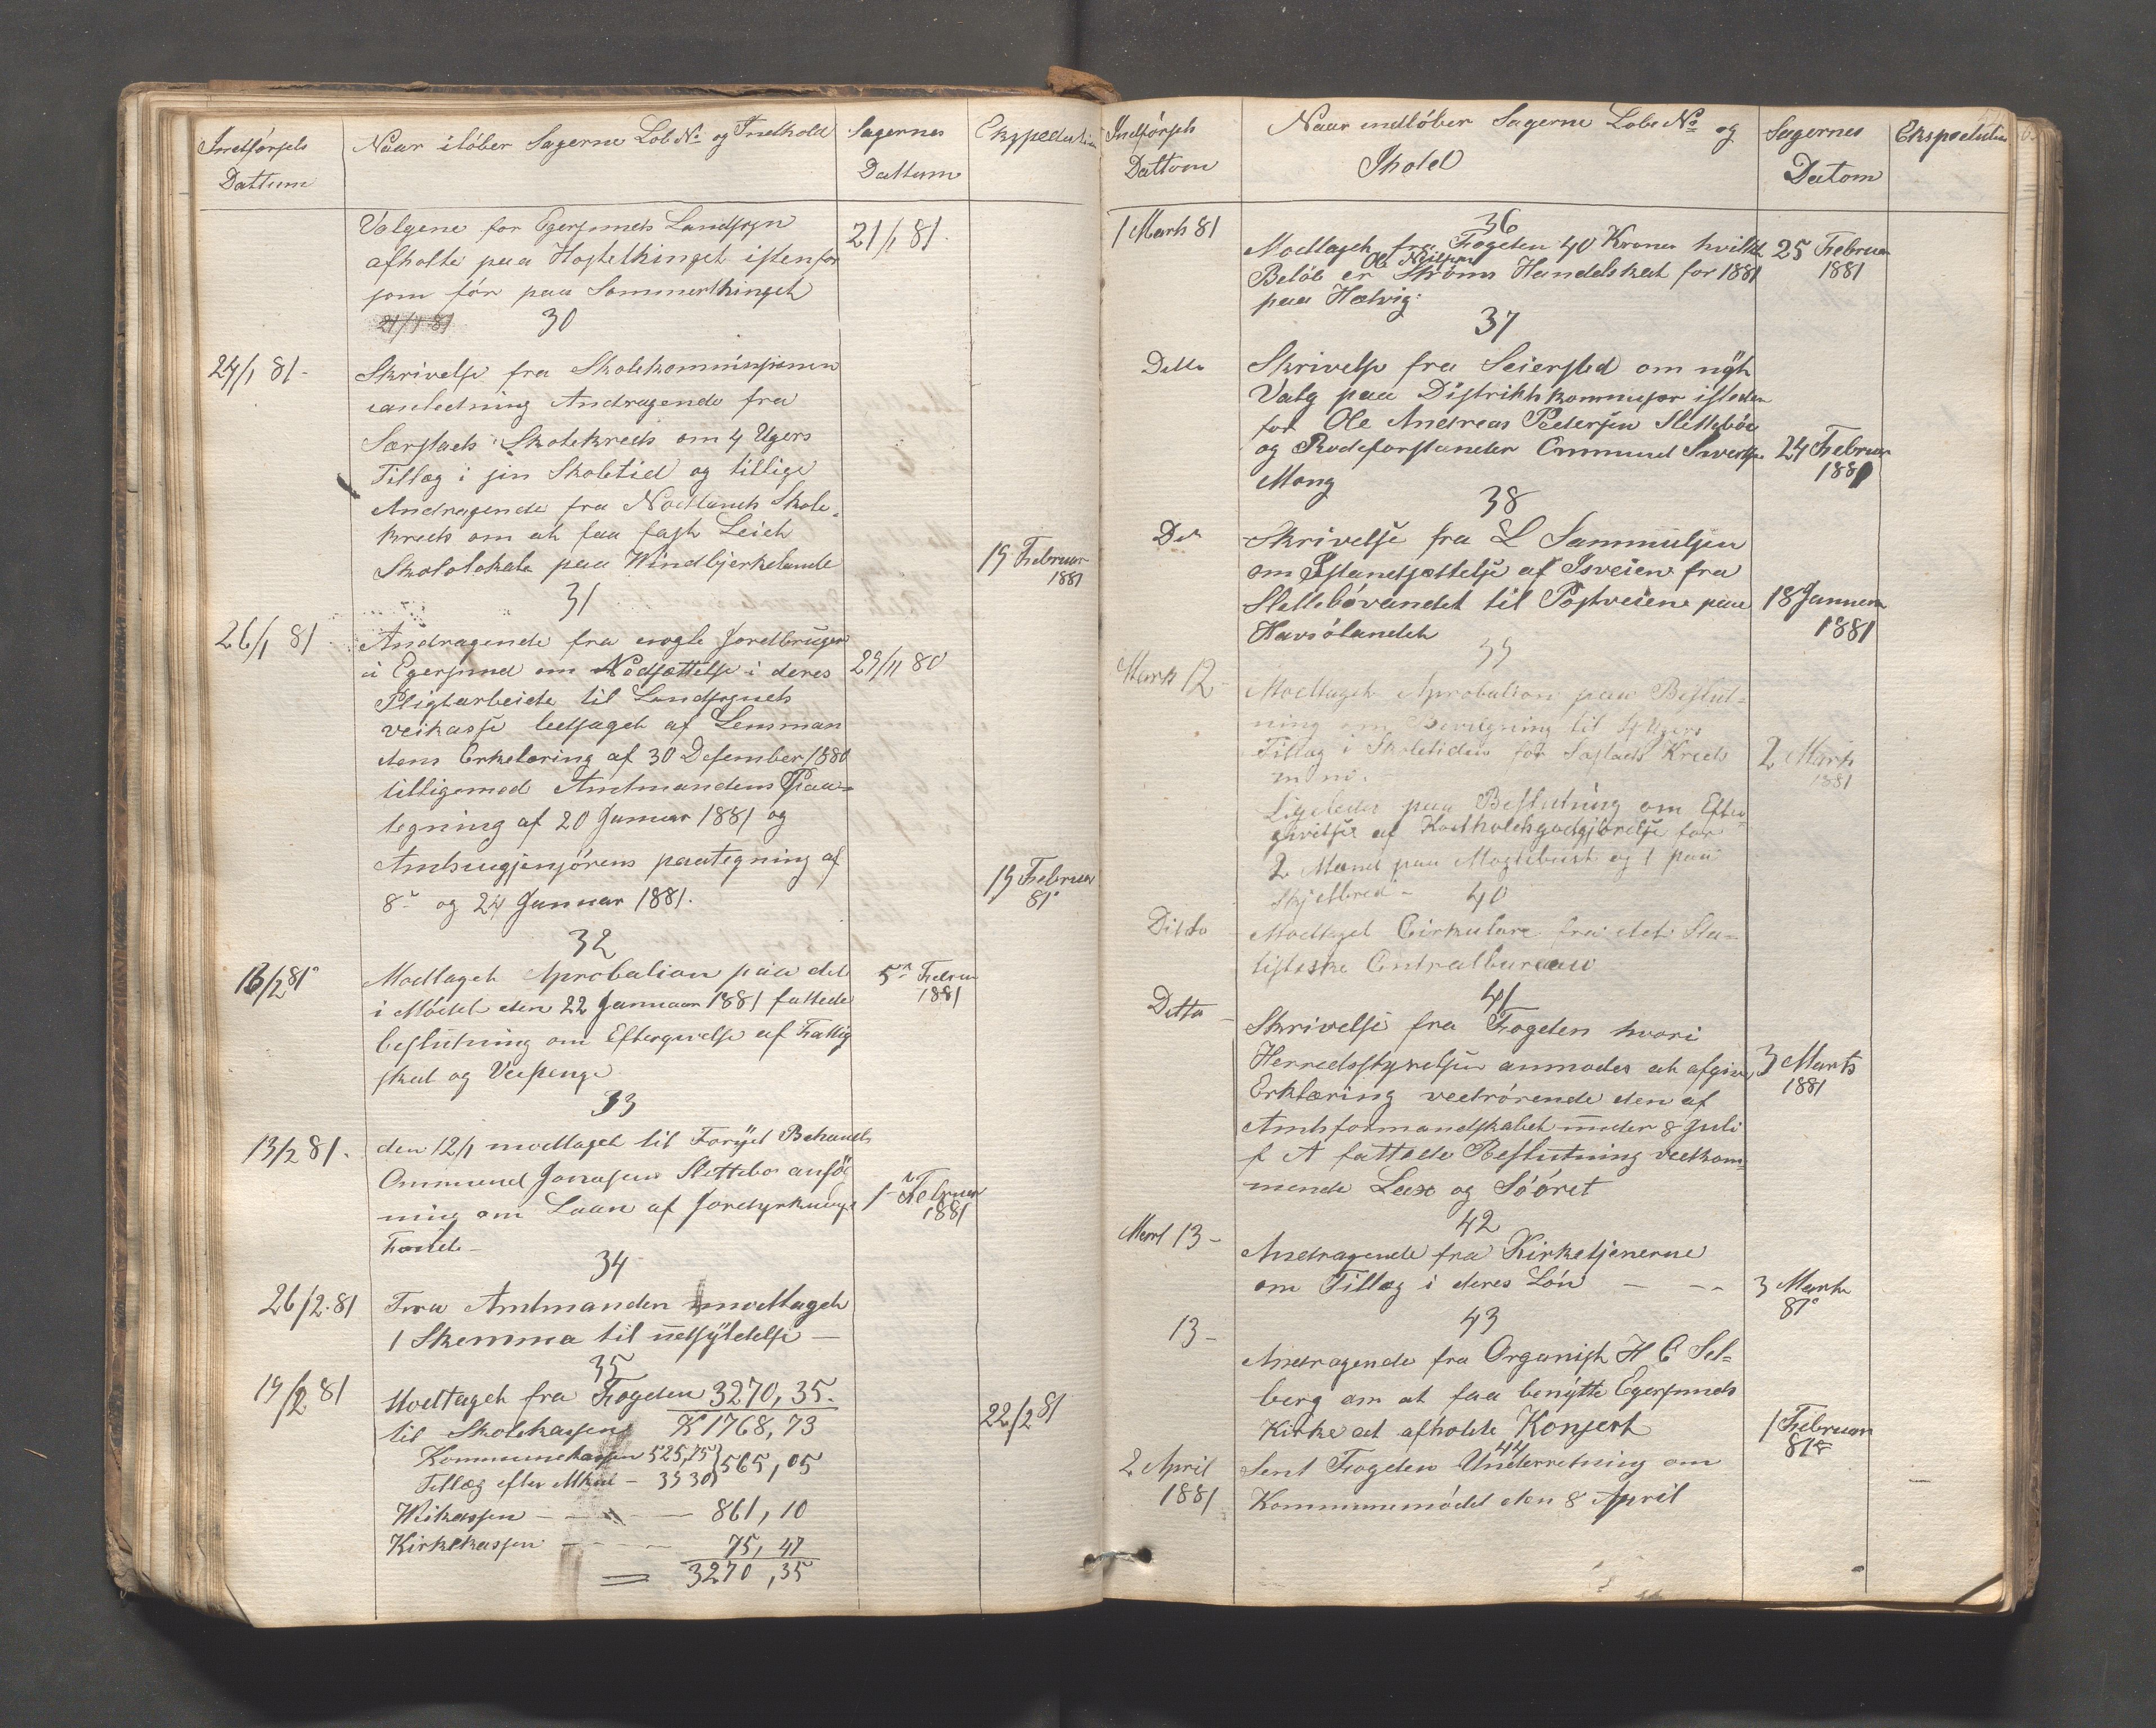 Indförsels
Dattum
Naar iløber Sagerne Lob No og Indhold
Sagernes
Dattum
Ekspedution
Valgene for Egersunds Landsogn
afholte paa Hosttthinget istenfor
som før paa Sommerthinget
21/1 81.
21/1 81
30
24/1 81-
Skrivelse fra Skolekommissionen
Andragende fra
Særstads Skolekreds om 4 Ugers
Tillæg i sin Skoletid og tillige
Andragende fra Nodlands Skole-
kreds om at faa fast Leiet
Skololokale paa Windbjerkelande
19 Februar
1881
31
26/1 81
Andragende fra nogle Jordbruger
i Egersund om Nedsættelse i deres
Pligtarbeide til Landsognets
veikasse ledsaget af Lensman
dens Erkelæring af 30 Desember 1880
tilligemed Amtmandens Paa-
tegning af 20 Januar 1881 og
Amtsingjenjörens paategning af
8- og 24 Januar 1881.
29/11 80
19 Februar
81
32
13/2 81
Modtaget Aprobation paa det
i Mødet den 22 Januar 1881 fattede
beslutning om Eftergivelse af Fattig
skat og Veipenge
5 Februar
1881
33
13/2 81.
den 12/1 modtaget til Foryet Behandl
Ommund Jonasen Slettebø ansø
ning om Laan af Jordyrknings
Fondet-
1 Februar
1881
34
26/2.81
Fra Amtmanden modtaget
1 Skemma til udfyldelse -
35
19/2 81
Modtaget fra Fogden 3270,35.
til Skolekassen K 1768,73
Kommunekassen 525,75 } 565,05
Tillæg efter Mkul - 39 30
Weikassen - - - 861,10
Kirkekassen - - - 75,47
= 3270,35
22/2 81
Indförsels
Dattom
Naar indløber Sagerne Lobe No og
Ihold
Sagernes
Datom
Ekspedution
36
1 Marts 81
Modtaget fra Fogden 40 Kroner hvilket
Ole Neilsens
Beløb er Strøms Handelskat for 1881
paa Hatvig.
25 Februar
1881
37
Ditto
Skrivelse fra Seiersted om nyt
Valg paa Distriktskommisær isteden
for Ole Andreas Pedersen Slettebøe
og Rodeforstander Ommund Swerkse
Mong
24 Februar
1881
38
Do
Skrivelse fra L Sammuelsen
om Istandsættelse af Isveien fra
Slettebøvandet til Postveien paa
Havsølandet
18 Januar
1881
39
Mark 12-
Modtaget Aprobation paa Beslut-
ning om Bevilgning til 4 Ugers
Tillæg i Skoletiden for Sæstads Kreds
m m.
Ligeledes paa Beslutning om Efter-
givelse af Kostholdsgodtgjørelse for
2 Mand paa Maglebust og 1 paa
Skjelbred -
2 Marts
1881
40
Ditto
Modtaget Cirkulare fra det Sta-
tistiske Centralbureau
41
Ditto
Skrivelse fra Fogden hvori
Herredsstyrelsen anmodes at afgive
Erklæring vedrørende den af
Amtsformandskabet under 8 Juli
f A fattede Beslutning vedkom-
mende Lax og Søóret
3 Marts
1881
42
Mart 13-
Andragende fra Kirketjenerne
om Tillæg i deres Løn - - -
3 Marts
81
43
13-
Andragende fra Organist H C Sel-
berg om at faa benytte Egersunds
Kirke at afholde Konsert
1 Februar
81
44
2 April
1881
Sent Fogden Underretning om
Kommunemødet den 8 April